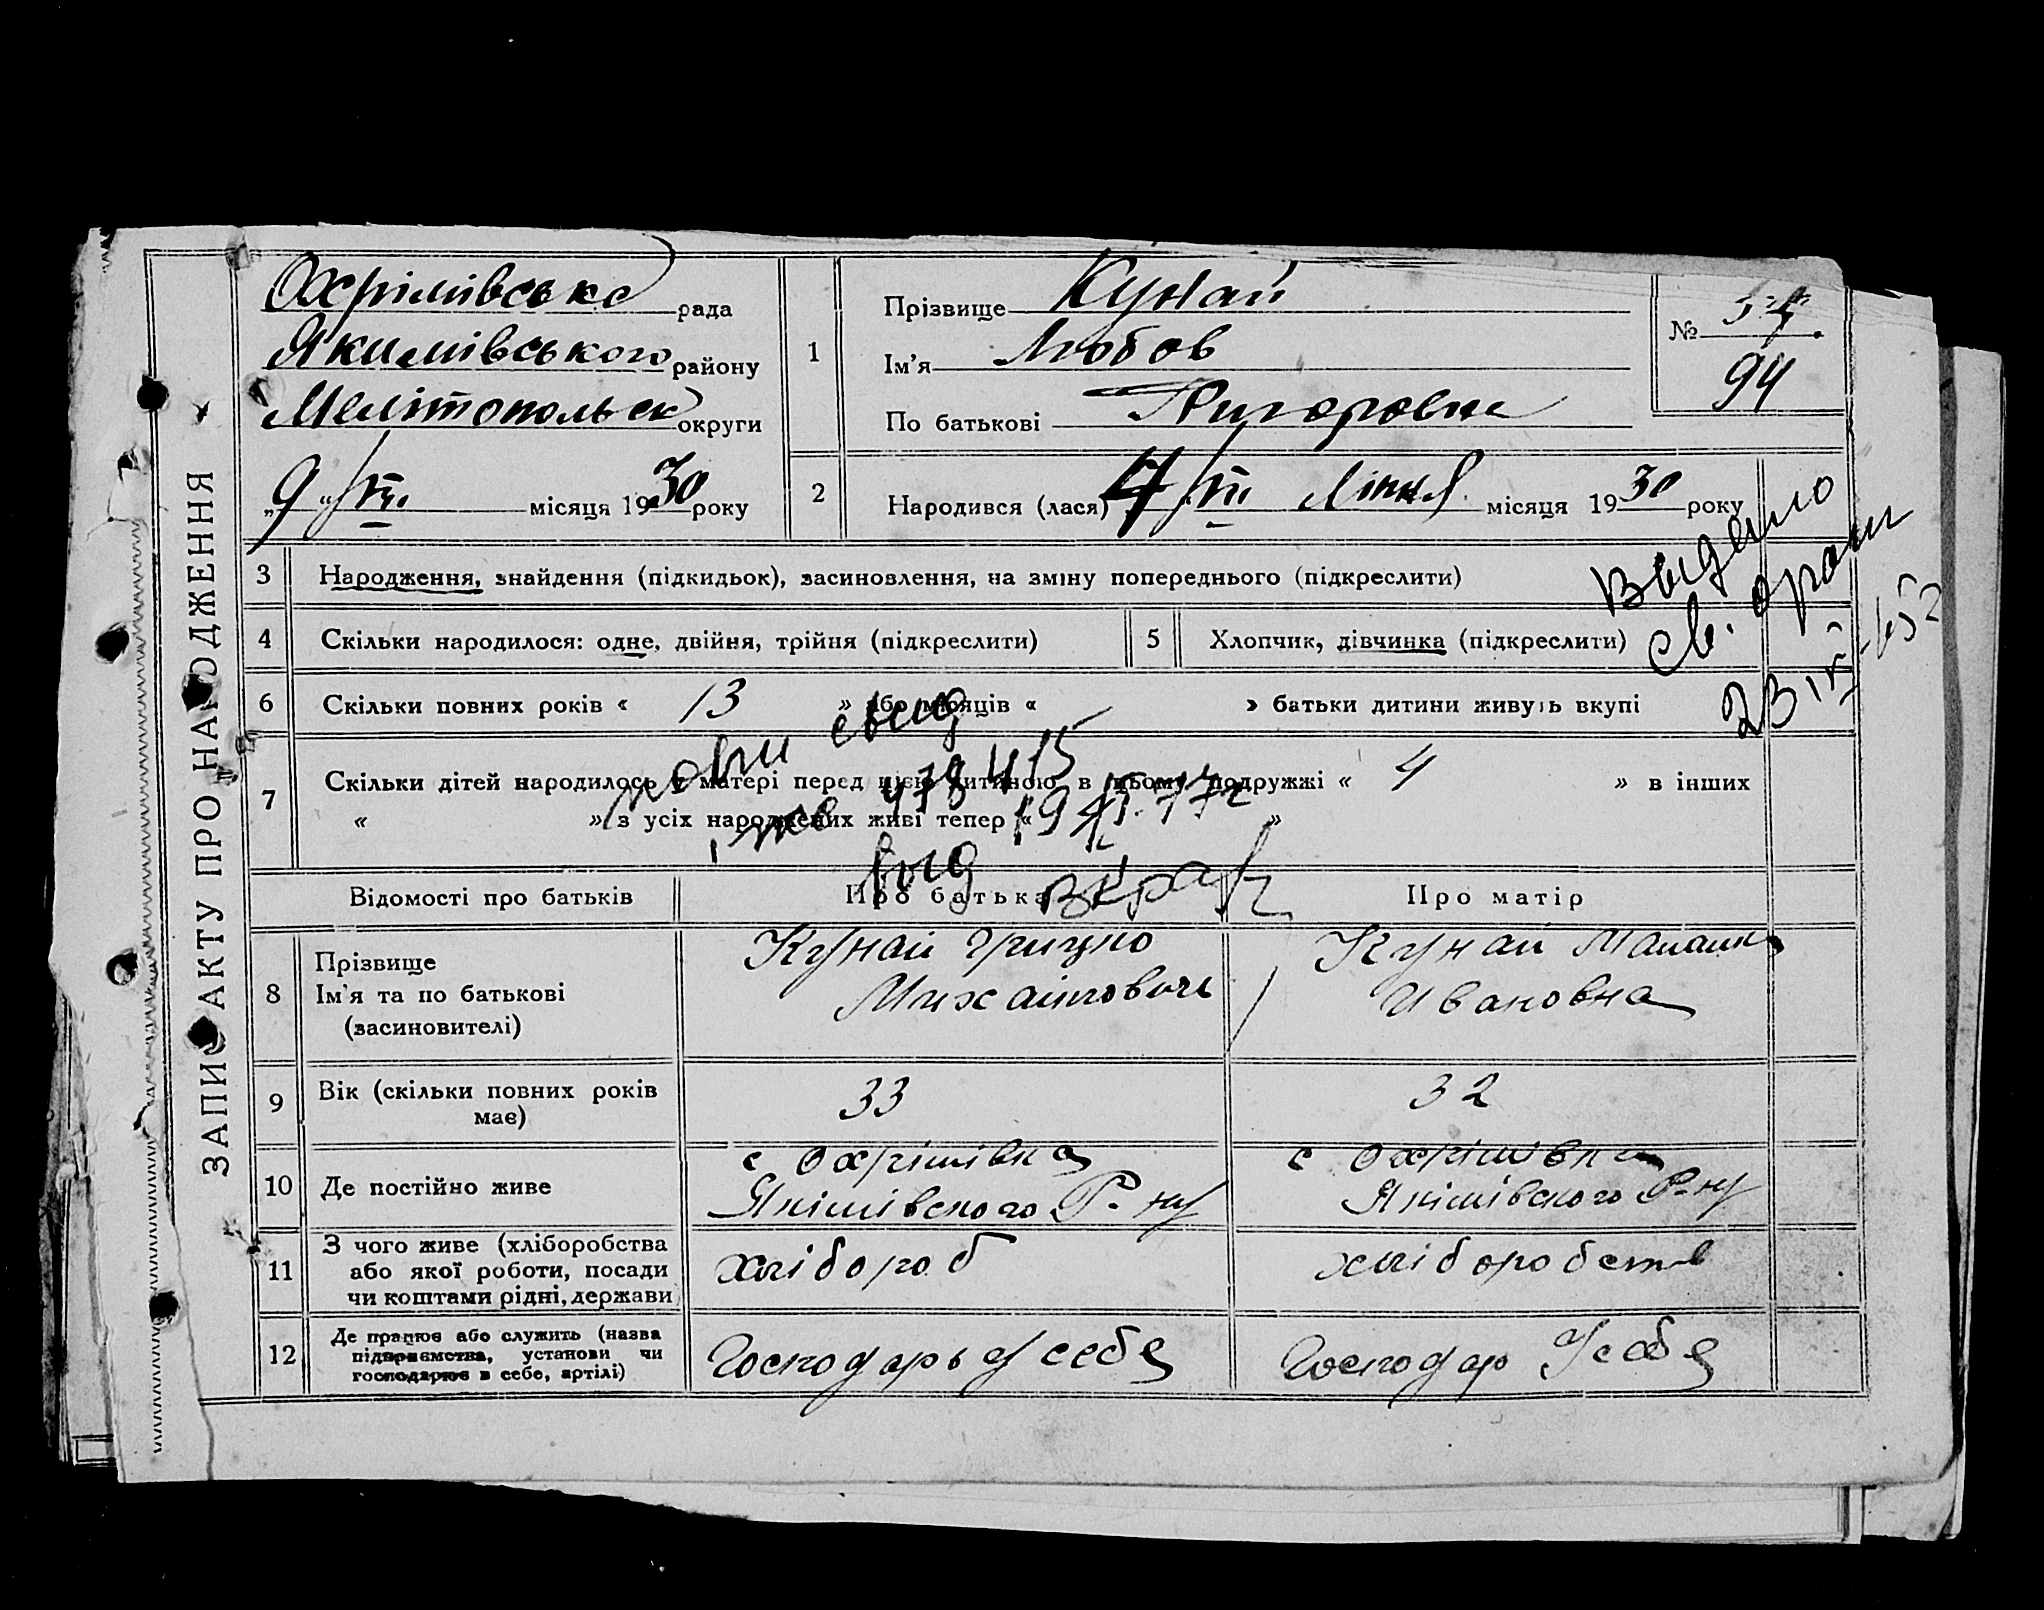 ЗАПИС АКТУ ПРО НАРОДЖЕННЯ
Охрімівська рада
Якимівського району
Мелітопольськ округи
„9“/VII місяця 1930 року
1
Прізвище Кунай
Ім'я Любов
По батькові Григоровна
№ 
94
2
Народився (лася) 7/VII Липня місяця 1930 року
3 Народження, знайдення (підкидьок), засиновлення, на зміну попереднього (підкреслити)
4 Скільки народилося: одне, двійня, трійня (підкреслити)
5 Хлопчик, дівчинка (підкреслити)
Выдано
св. о рожд
23/ -52
6 Скільки повних років « 13 » або місяців « » батьки дитини живуть вкупі
7 Скільки дітей народилось у матері перед цією дитиною в цьому подружжі « 4 » в інших
« » з усіх народжених живі тепер « »
478415
выд
Відомості про батьків Про батька Про матір
8 Прізвище
Ім'я та по батькові
(засиновителі)
Кунай Грицко
Михайлович
Кунай
Ивановна
9 Вік (скільки повних років
має)
33
32
10 Де постійно живе
с Охрімівка
Якімівского Р-ну
с Охрімівка
Якімівского Р-ну
11 З чого живе (хліборобства
або якої роботи, посади
чи коштами рідні, держави
хлібороб
хліборобств
12 Де працює або служить (назва
підприємства, установи чи
господарює в себе, артілі)
Господарь У себя
Господар У себя